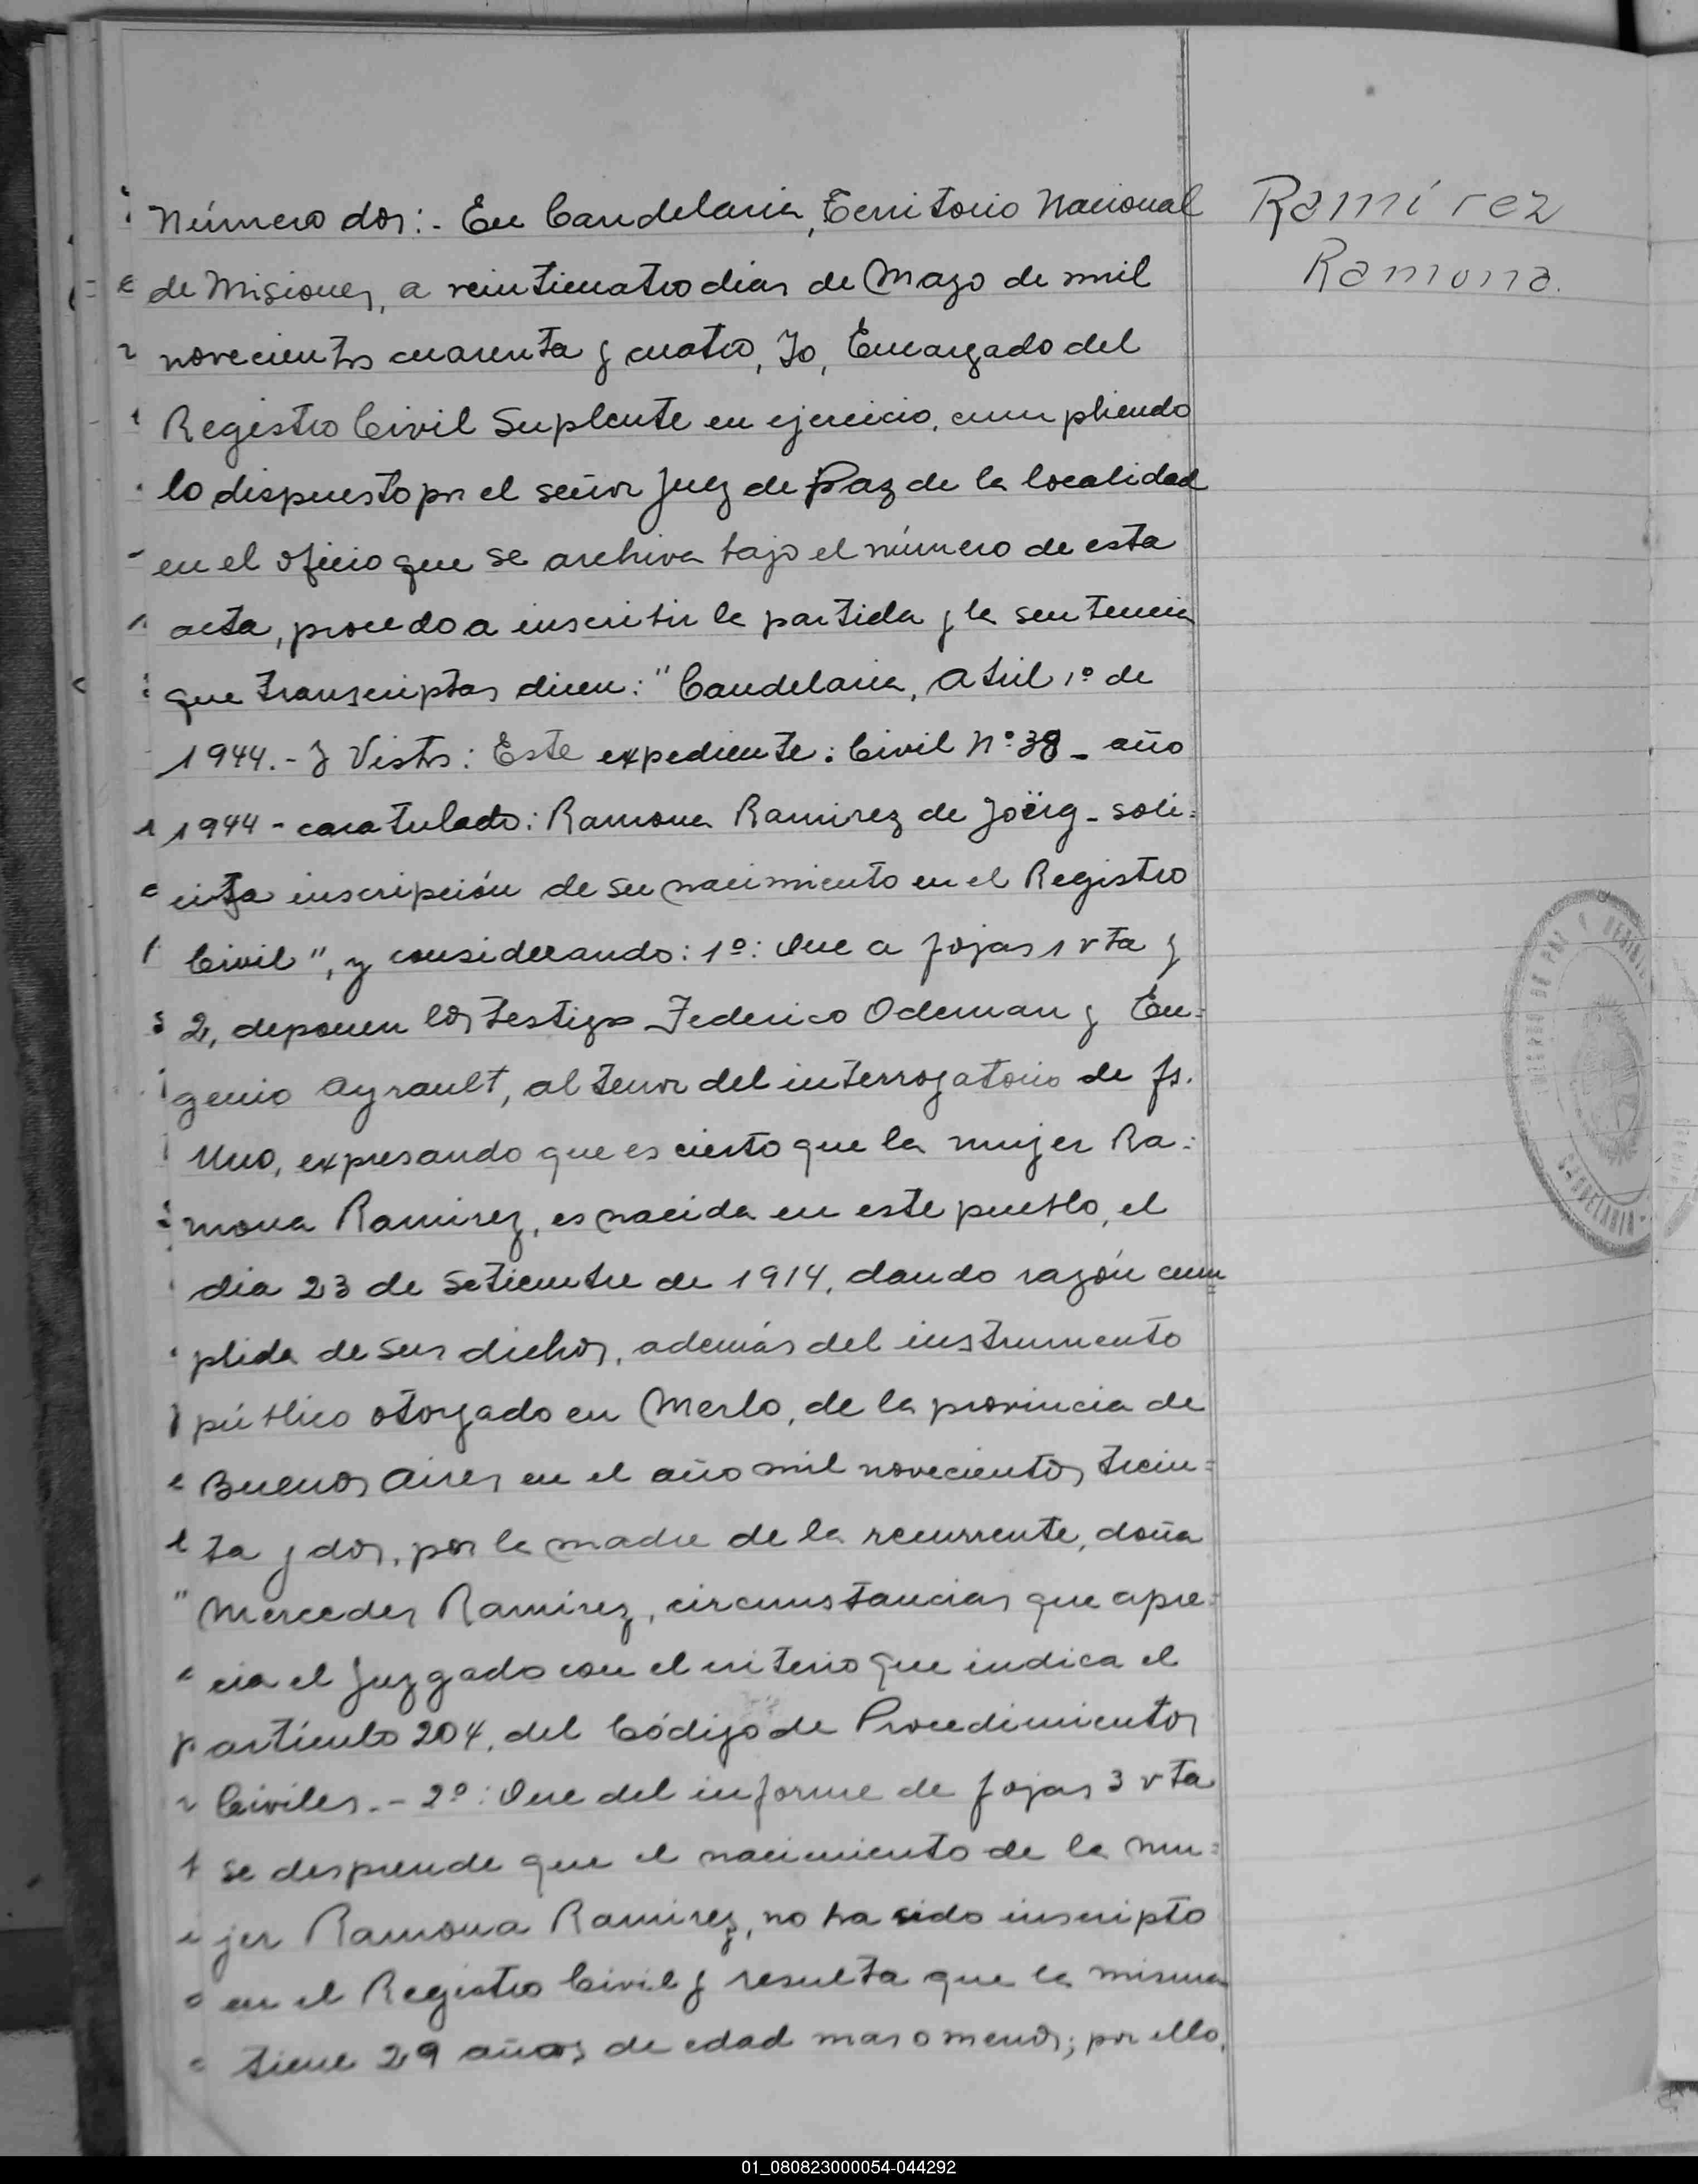 Número dos:- En Candelaria, Territorio Nacional
Ramírez
de Misiones, a veinticuatro dias de Mayo de mil
Ramona.
novecientos cuarenta y cuatro, Yo, Encargado del
Registro Civil Suplente en ejercicio, cumpliendo
lo dispuesto por el señor Juez de Paz de la localidad
en el oficio que se archiva bajo el número de esta
acta, procedo a inscribir la partida y la sentencia
que transcriptas dicen: "Candelaria, Abril 1º de
1944.- Y Vistos: Este expediente: Civil Nº 38 - año
1944 - caratulado: Ramona Ramirez de Joërg - soli=
cita inscripción de su nacimiento en el Registro
Civil", y considerando: 1º: Que a fojas 1 vta y
2, deponen los testigos Federico Odeman y Eu=
genio Ayrault, al tenor del interrogatorio de fs.
Uno, expresando que es cierto que la mujer Ra=
mona Ramirez, es nacida en este pueblo, el
dia 23 de Setiembre de 1914, dando razón cum
plida de sus dichos, además del instrumento
público otorgado en Merlo, de la provincia de
Buenos Aires en el año mil novecientos trein=
ta y dos, por la madre de la recurrente, doña
Mercedes Ramirez, circunstancias que apre=
cia el Juzgado con el criterio que indica el
artículo 204, del Código de Procedimientos
Civiles.- 2º: Que del informe de fojas 3 vta
se desprende que el nacimiento de la mu=
jer Ramona Ramirez, no ha sido inscripto
en el Registro Civil y resulta que la misma
tiene 29 años de edad mas o menos; por ello,
01_080823000054-044292